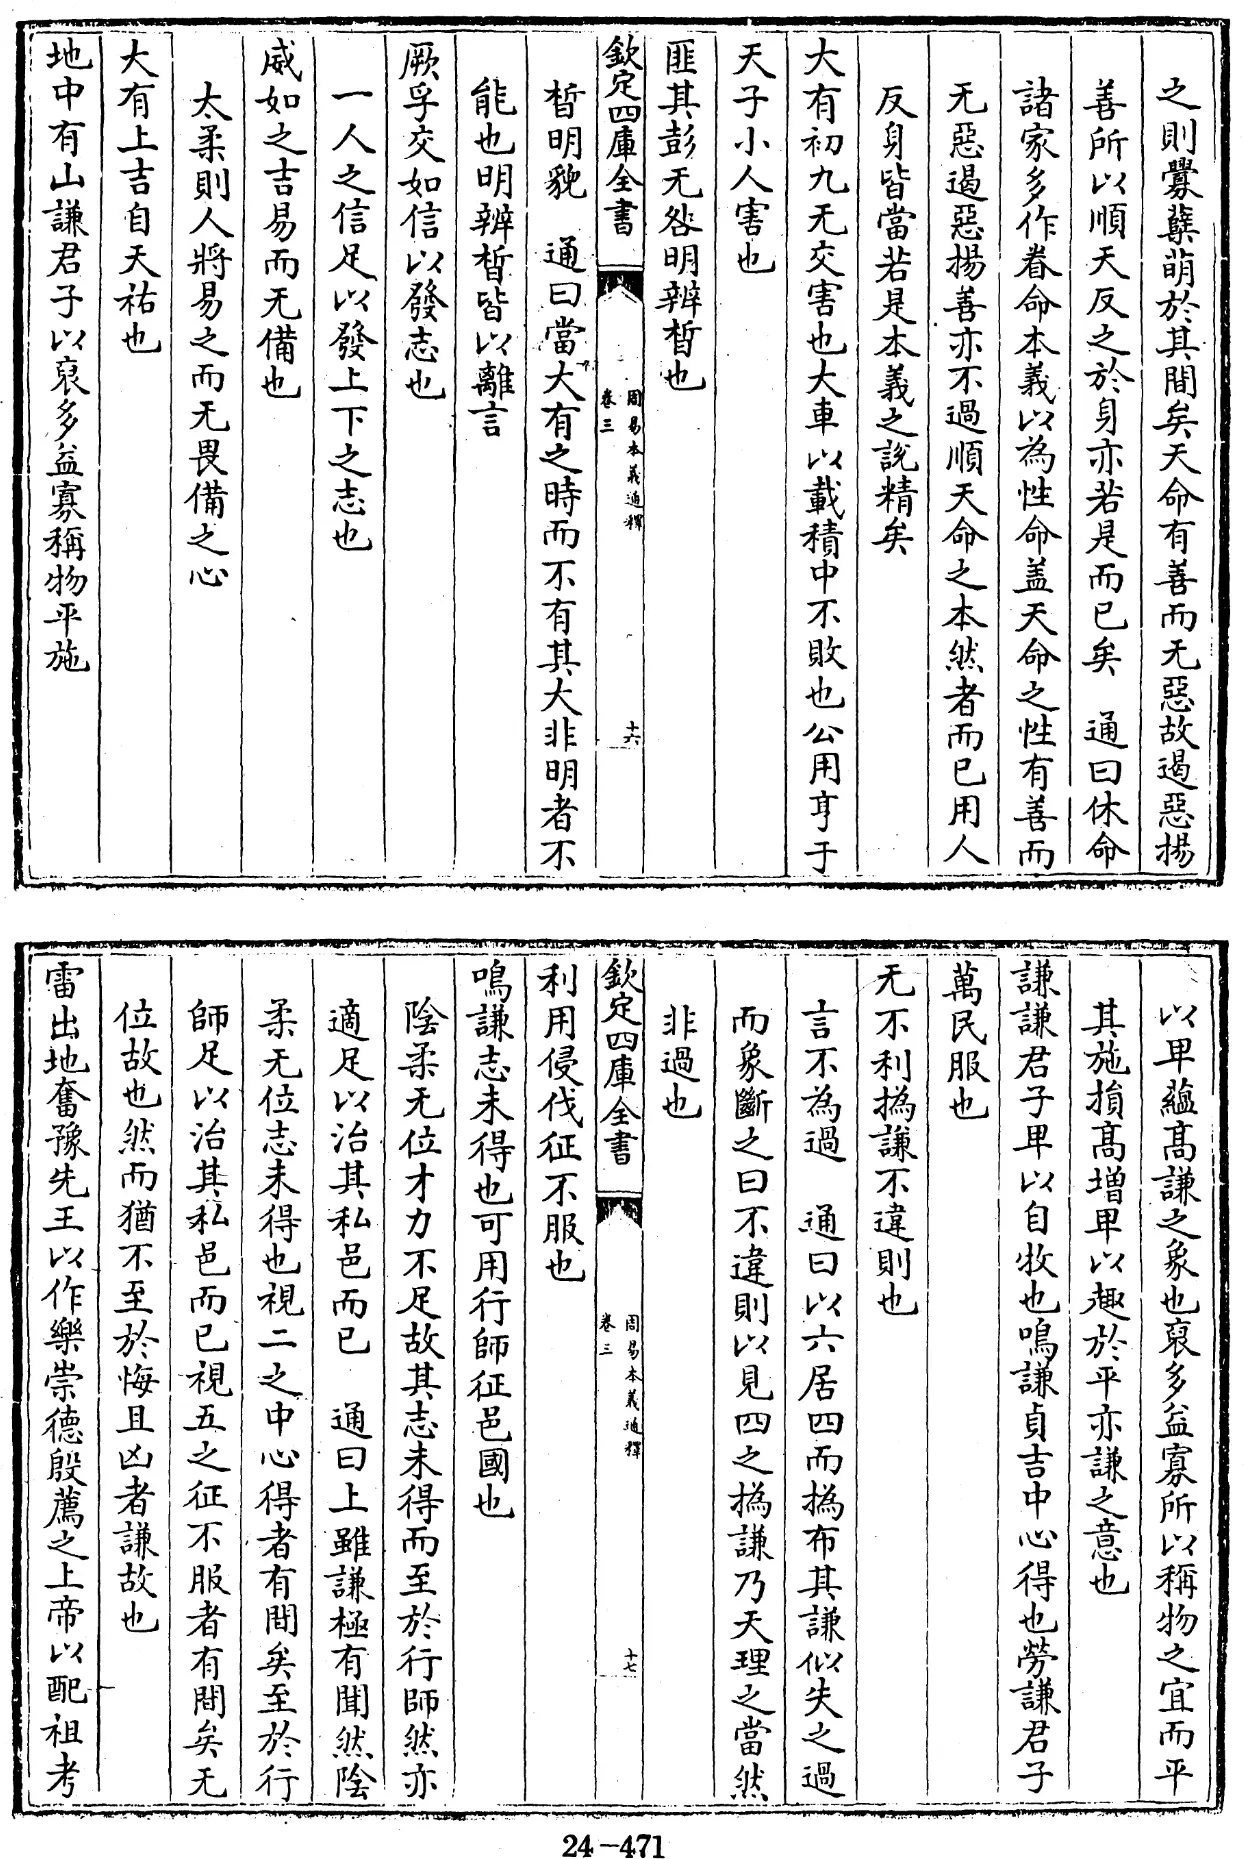 之則釁蘖萌於其間矣天命有善而无惡故遏惡揚
善所以順天反之於身亦若是而已矣　通曰休命
諸家多作眷命本義以為性命盖天命之性有善而
无惡遏惡揚善亦不過順天命之本然者而已用人
反身皆當若是本義之說精矣
大有初九无交害也大車以載積中不敗也公用亨于
天子小人害也
匪其彭无咎明辨晳也
欽定四庫全書
周易本義通釋
卷三
十六
晳明貌　通曰當大有之時而不有其大非明者不
能也明辨晳皆以離言
厥孚交如信以發志也
一人之信足以發上下之志也
威如之吉易而无備也
太柔則人將易之而无畏備之心
大有上吉自天祐也
地中有山謙君子以裒多益寡稱物平施
以卑蘊髙謙之象也裒多益寡所以稱物之宜而平
其施損髙增卑以趣於平亦謙之意也
謙謙君子卑以自牧也鳴謙貞吉中心得也勞謙君子
萬民服也
无不利撝謙不違則也
言不為過　通曰以六居四而撝布其謙似失之過
而象斷之曰不違則以見四之撝謙乃天理之當然
非過也
欽定四庫全書
周易本義通釋
卷三
十七
利用侵伐征不服也
鳴謙志未得也可用行師征邑國也
陰柔无位才力不足故其志未得而至於行師然亦
適足以治其私邑而已　通曰上雖謙極有聞然陰
柔无位志未得也視二之中心得者有間矣至於行
師足以治其私邑而已視五之征不服者有間矣无
位故也然而猶不至於悔且凶者謙故也
雷出地奮豫先王以作樂崇德殷薦之上帝以配祖考
24-471